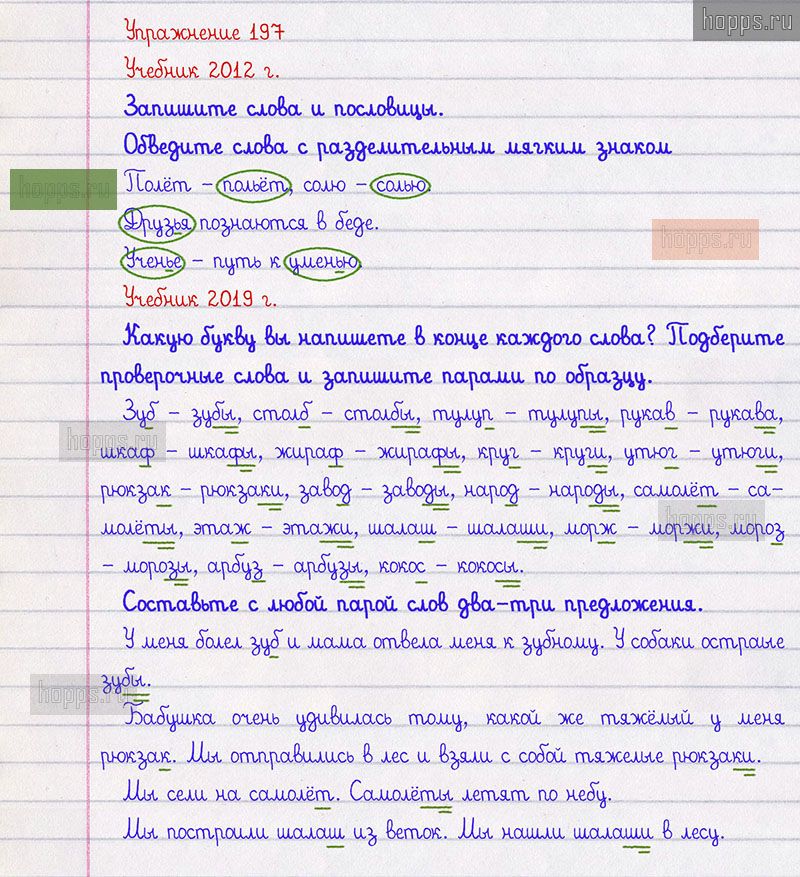 hopps.ru
Упражнение 197
Учебник 2012 г.
Запишите слова и пословицы.
Обведите слова с разделительным мягким знаком
hopps.ru
Полёт – польёт, солю – солью.
Друзья познаются в беде.
hopps.ru
Ученье – путь к уменью.
Учебник 2019 г.
Какую букву вы напишете в конце каждого слова? Подберите
проверочные слова и запишите парами по образцу.
Зуб – зубы, столб – столбы, тулуп – тулупы, рукав – рукава,
hopps.ru
шкаф – шкафы, жираф – жирафы, круг – круги, утюг – утюги,
рюкзак – рюкзаки, завод – заводы, народ – народы, самолёт – са-
hopps.ru
молёты, этаж – этажи, шалаш – шалаши, морж – моржи, мороз
– морозы, арбуз – арбузы, кокос – кокосы.
Составьте с любой парой слов два-три предложения.
У меня болел зуб и мама отвела меня к зубному. У собаки остраые
зубы.
hopps.ru
Бабушка очень удивилась тому, какой же тяжёлый у меня
рюкзак. Мы отправились в лес и взяли с собой тяжелые рюкзаки.
Мы сели на самолёт. Самолёты летят по небу.
Мы построили шалаш из веток. Мы нашли шалаши в лесу.